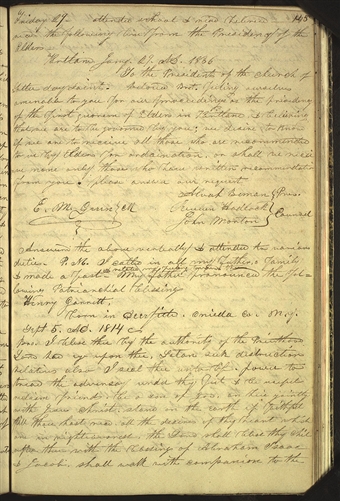 145
Friday 29. attended school & read Hebrew
received the following line from the Presidency of the
Elders
Kirtland Jany. 29. AD. 1836
To the Presidents of the church of
Latter day saints. Beloved Bret. Feeling ourselves
amenable to you for our proceedings as the presidency
of the first quorum of Elders in Kirtland, & believing
that we are to be governed by you; we desire to know
if we are to receive all those who are recommended
to us by Elders for ordination, or shall we receive
none only those who have written recommendation
from you. please answer our request
Alvah Beman Pres
Reuben Hedlock
John Morton Counsel
E. M. Greene, Clk
Answered the above verbally & attended to various
duties. P.M. I called in all my Father's family
& made a feast. My Father pronounced the fol-
lowing Patriarchial blessings
Henry Garrett,
Born in Deerfield. Oneida Co. N.Y.
Sept 5. AD. 1814
Bro. I bless thee by the authority of the Priesthood
Lord has eye upon thee, Satan seek destruction
relatives also I seal thee unto life. power to
tread the adversary under thy feet & be useful
reclaim friends, be a son of God, an heir jointly
with Jesus Christ, stand on the earth if faithful
till thou hast recd. all the desires of thy heart which
are in righteousness, the Lord shall bless thy chil-
after thee with the blessings of Abraham Isaac
& Jacob, shall walk with companion to the